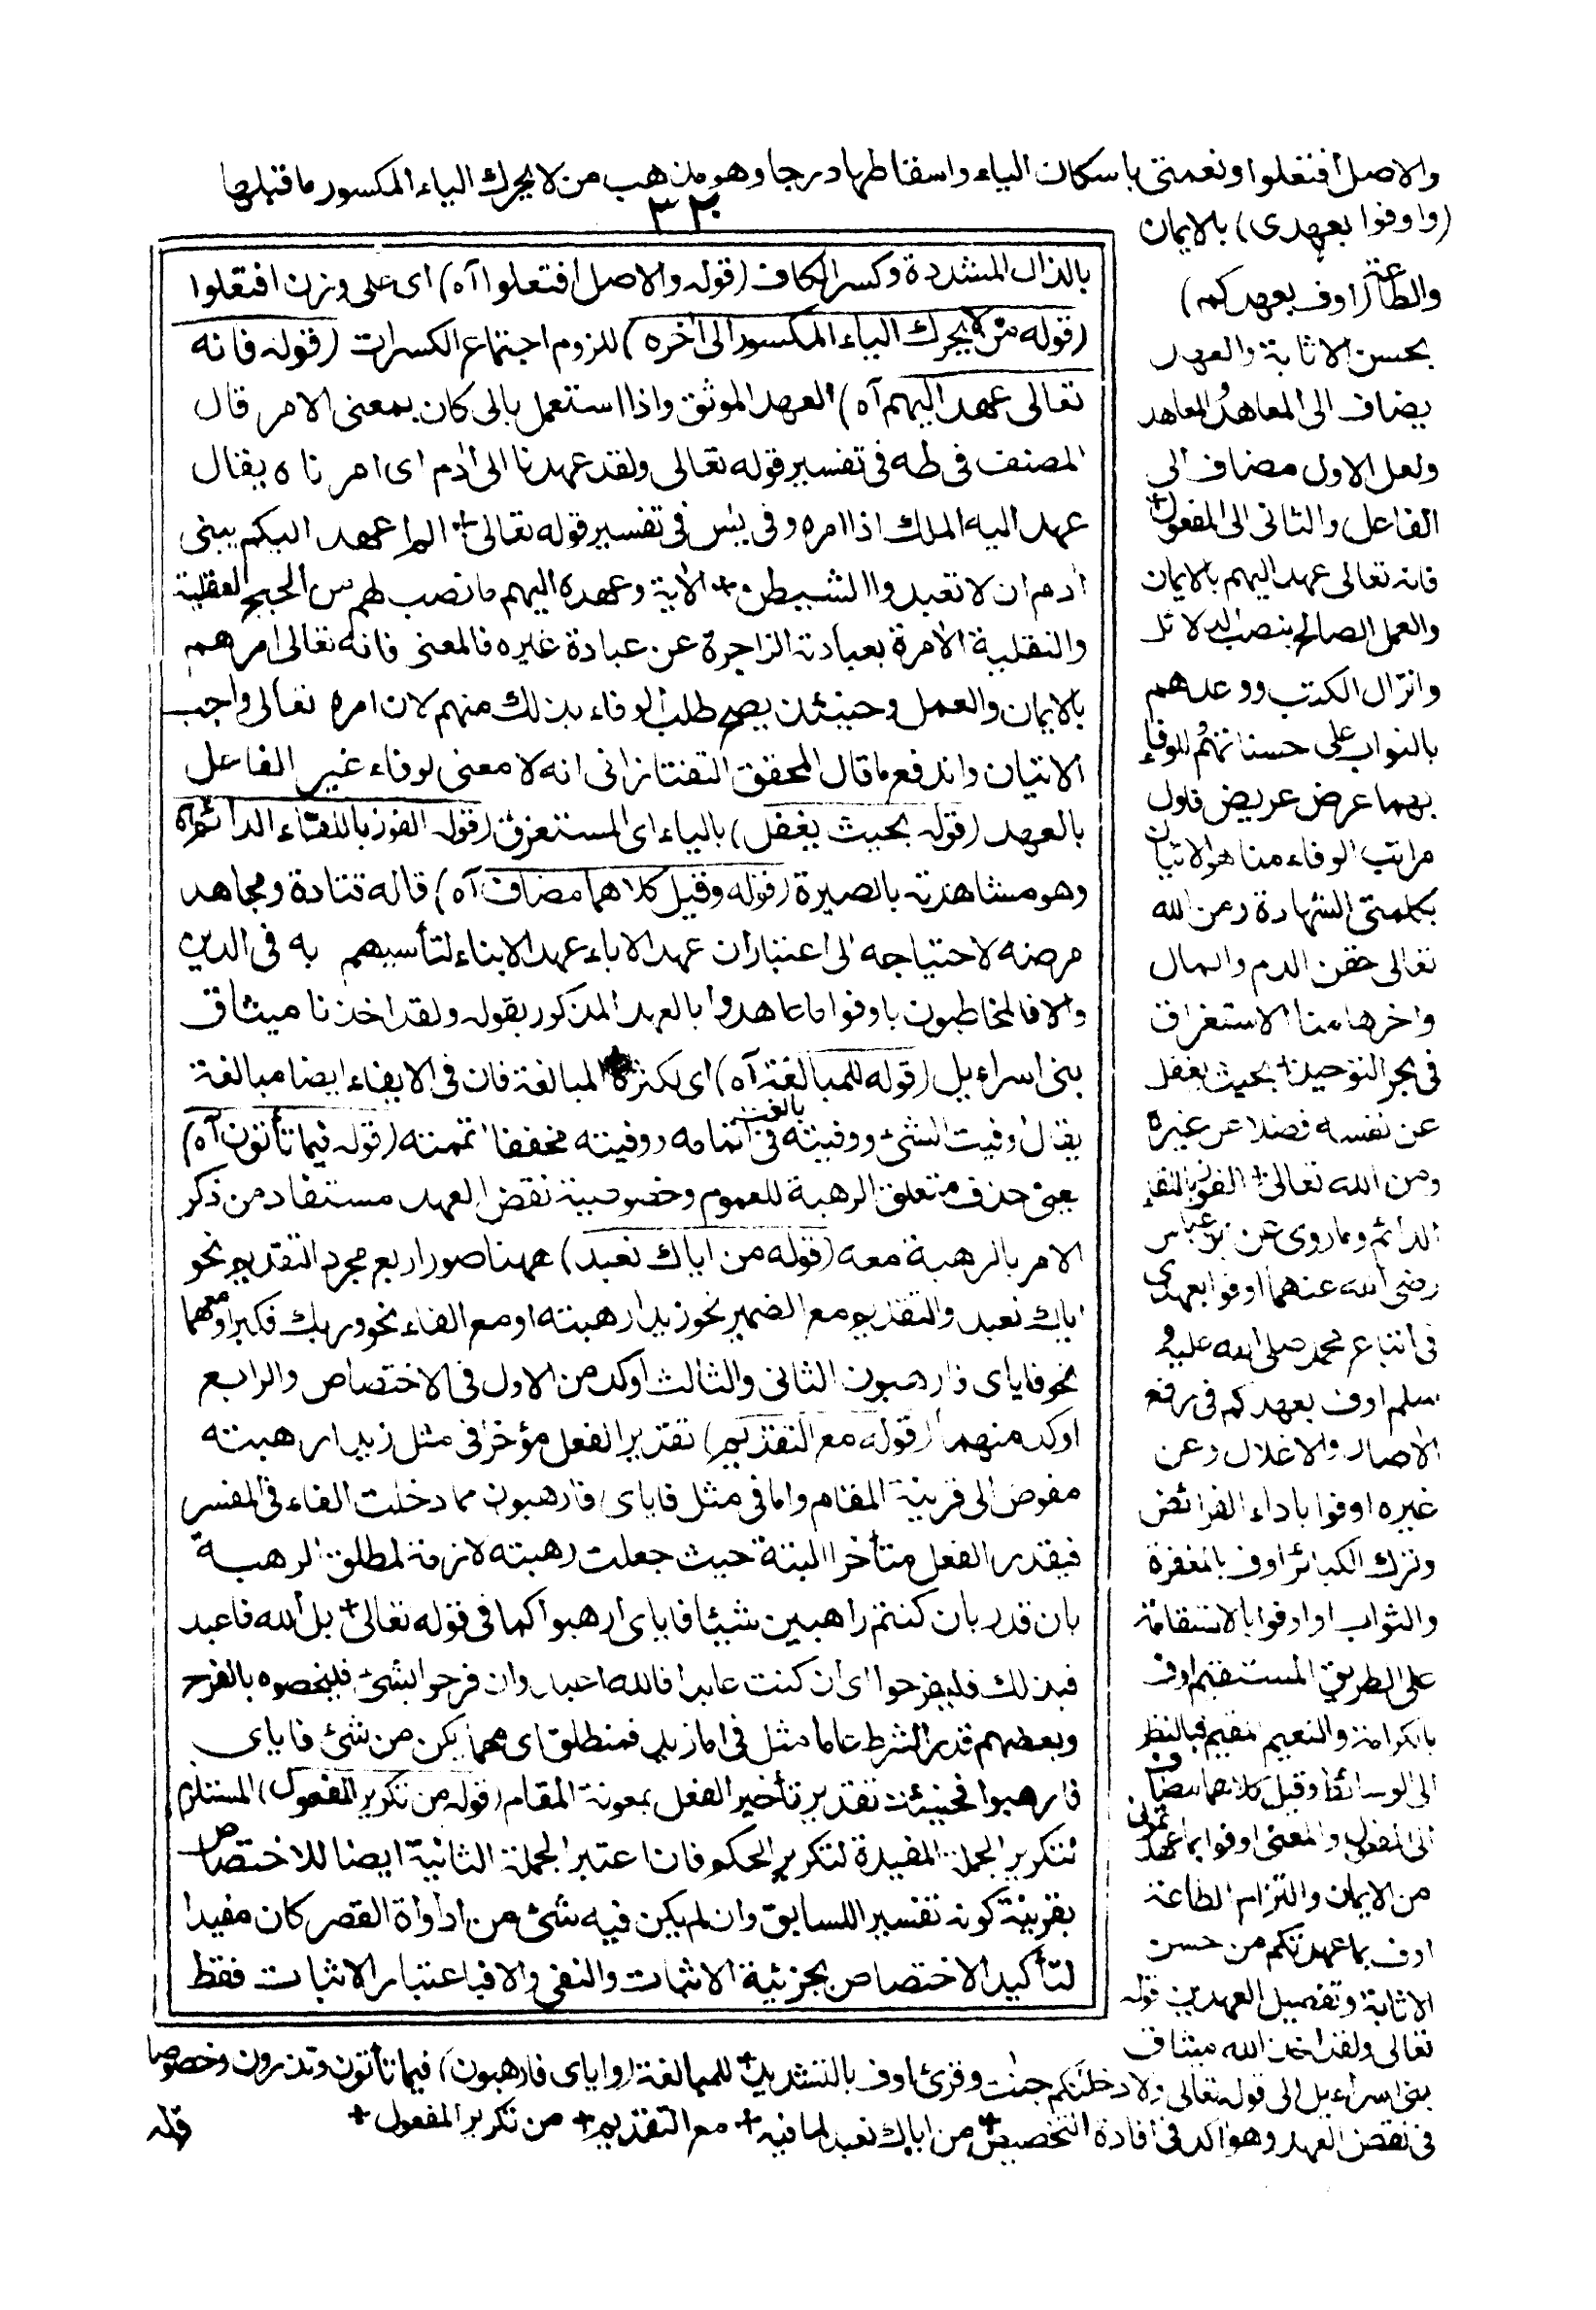 والاصل افتعلوا ونعمتى باسكان الياء واسقاطها درجا وهو مذهب من لا يحرك الياء المكسور ما قبلها
٣٢٠
(واوفوا بعهدى) بالايمان
والطاعة (اوف بعهدكم)
بحسن الاثابة والعهد
يضاف الى المعاهد والمعاهد
ولعل الاول مضاف الى
الفاعل والثانى الى المفعول+
فانه تعالى عهد اليهم بالايمان
والعمل الصالح بنصب الدلائل
وانزال الكتب ووعدهم
بالثواب على حسناتهم وللوفاء
بهما عرض عريض فاول
مراتب الوفاء منا هو الاتيان
بكلمتى الشهادة ومن الله
تعالى حقن الدم والمال
واخرها منا الاستغراق
فى بحر التوحيد+ بحيث يغفل
عن نفسه فضلا عن غيره
ومن الله تعالى+ الفوز باللقاء
الدائم وما روى عن ابن عباس
رضى الله عنهما اوفوا بعهدى
فى اتباع محمد صلى الله عليه و
سلم اوف بعهدكم فى رفع
الاصار والاغلال وعن
غيره اوفوا باداء الفرائض
وترك الكبائر اوف بالمغفرة
والثواب او اوفوا بالاستقامة
على الطريق المستقيم اوف
بالكرامة والنعيم المقيم فبالنظر
الى الوسائط وقيل كلاهما مضاف
الى المفعول والمعنى اوفوا بما عاهدتمونى
من الايمان والتزام الطاعة
اوف بما عهدتكم من حسن
الاثابة وتفصيل العهدين قوله
تعالى ولقد اخذ الله ميثاق
بنى اسراءيل الى قوله تعالى ولادخلنكم جنت وقرئ اوف بالتشديد+ للمبالغة (واياى فارهبون) فيما تأتون وتذرون وخصوصا
فى نقض العهد وهو اكد فى افادة التخصيص+ من اياك نعبد لما فيه+ مع التقديم+ من تكرير المفعول+
بالذال المشددة وكسر الكاف (قوله والاصل افتعلوا آه) اى على وزن افتعلوا
(قوله من لا يحرك الياء المكسور الى اخره) للزوم اجتماع الكسرات (قوله فانه
تعالى عهد اليهم آه) العهد الموثق واذا استعمل بالى كان بمعنى الامر قال
المصنف فى طه فى تفسير قوله تعالى ولقد عهدنا الى ادم اى امرناه يقال
عهد اليه الملك اذا امره وفى يٰس فى تفسير قوله تعالى+ الم اعهد اليكم يبنى
ادم ان لا تعبدوا الشيطن+ الاية وعهده اليهم ما نصب لهم من الحجج العقلية
والنقلية الامرة بعبادته الزاجرة عن عبادة غيره فالمعنى فانه تعالى امرهم
بالايمان والعمل وحينئذ يصح طلب الوفاء بذلك منهم لان امره تعالى واجب
الاتيان واندفع ما قال المحقق التفتازانى انه لا معنى لوفاء غير الفاعل
بالعهد (قوله بحيث يغفل) بالياء اى المستغرق (قوله الفوز باللقاء الدائم آه
وهو مشاهدته بالبصيرة (قوله وقيل كلاهما مضاف آه) قاله قتادة ومجاهد
مرضه لاحتياجه الى اعتبار ان عهد الاباء عهد الابناء لتأسيهم به فى الدين
والا فالمخاطبون باوفوا ما عاهدوا بالعهد المذكور بقوله ولقد اخذنا ميثاق
بنى اسراءيل (قوله للمبالغة آه) اى لكثرة المبالغة فان فى الايفاء ايضا مبالغة
يقال اوفيت الشئ ووفيته بالغت فى اتمامه ووفيته مخففا اتممته (قوله فيما تأتون آه)
يعنى حذف متعلق الرهبة للعموم وخصوصية نقض العهد مستفاد من ذكر
الامر بالرهبة معه (قوله من اياك نعبد) ههنا صور اربع مجرد التقديم نحو
اياك نعبد والتقديم مع الضمير نحو زيدا رهبته او مع الفاء نحو وربك فكبر او معهما
نحو فاياى فارهبون الثانى والثالث اوكد من الاول فى الاختصاص والرابع
اوكد منهما (قوله مع التقديم) تقدير الفعل مؤخرا فى مثل زيدا رهبته
مفوض الى قرينة المقام واما فى مثل فاياى فارهبون مما دخلت الفاء فى المفسر
فيقدر الفعل متأخرا البتة حيث جعلت رهبته لازمة لمطلق الرهبة
بان قدر بان كنتم راهبين شيئا فاياى ارهبوا كما فى قوله تعالى+ بل الله فاعبد
فبذلك فليفرحوا اى ان كنت عابدا فالله اعبد وان فرحوا بشئ فليخصوه بالفرح
وبعضهم قدر الشرط عاما مثل فى اما زيد فمنطلق اى مهما يكن من شئ فاياى
فارهبوا فحينئذ تقدير تأخير الفعل بمعونة المقام (قوله من تكرير المفعول) المستلزم
لتكرير الجملة المفيدة لتكرير الحكم فان اعتبر الجملة الثانية ايضا للاختصاص
بقرينة كونه تفسيرا للسابق وان لم يكن فيه شئ من ادواة القصر كان مفيدا
لتأكيد الاختصاص بجزئية الاثبات والنفى والا فباعتبار الاثبات فقط
قوله